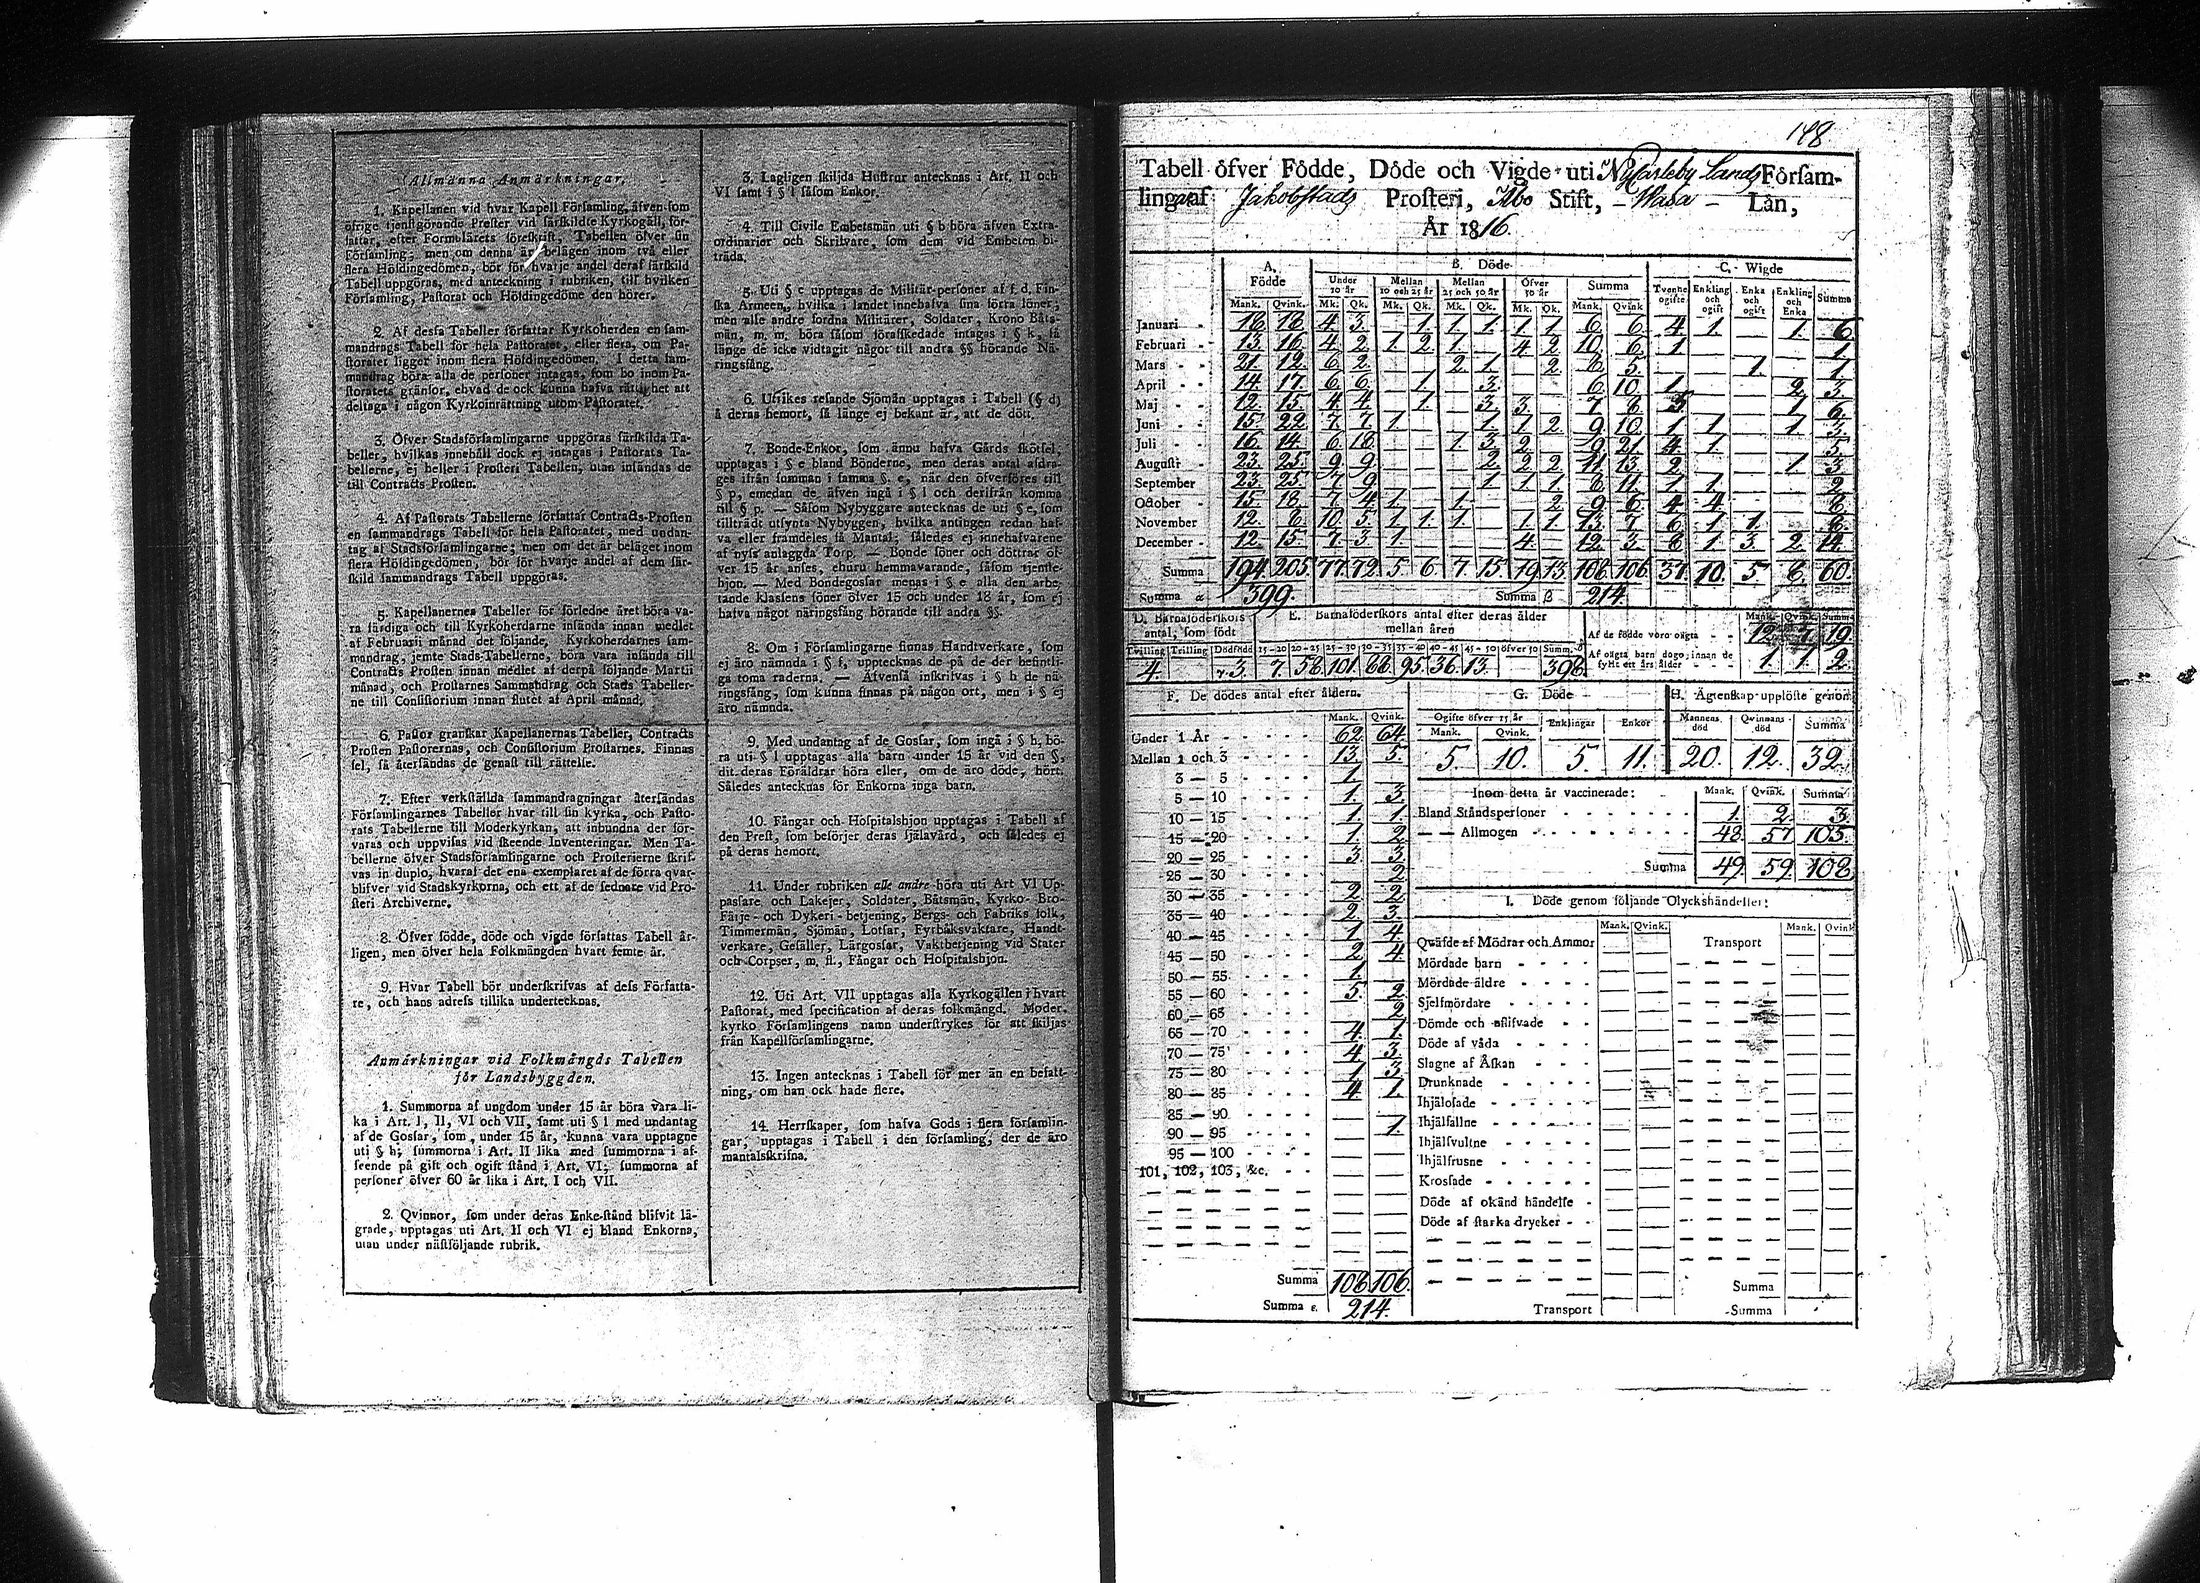 Allmänna Anmärkningar.
1. Kapellanen vid hvar Kapell Församling, äfven som
öfrige tjenstgörande Prester vid särskildte Kyrkogäll, för-
fattar, efter Formulärets föreskrift, Tabellen öfver sin
Församling; men om denna är belägen inom två eller
flera Höfdingedömen, bör för hvarje andel deraf särskild
Tabell uppgöras, med anteckning i rubriken, till hvilken
Församling, Pastorat och Höfdingedöme den hörer.
2. Af dessa Tabeller författar Kyrkoherden en sam-
mandrags Tabell för hela Pastoratet, eller flera, om Pa-
storatet ligger inom flera Höfdingedömen. I detta sam-
mandrag böra alla de personer intagas, som bo inom Pa-
storatets gränsor, ehvad de ock kunna hafva rättighet att
deltaga i någon Kyrkoinrättning utom Pastoratet.
3. Öfver Stadsförsamlingarne uppgöras särskilda Ta-
beller, hvilkas innehåll dock ej intages i Pastorats Ta-
bellerne, ej heller i Prosteri Tabellen, utan insändas de
till Contracts Prosten.
4. Af Pastorats Tabellerne författar Contracts-Prosten
en sammandrags Tabell för hela Pastoratet, med undan-
tag af Stadsförsamlingarne; men om det är beläget inom
flera Höfdingedömen, bör för hvarje andel af dem sär-
skild sammandrags Tabell uppgöras.
5. Kapellanernes Tabeller för förledne året böra va-
ra färdiga och till Kyrkoherdarne insända innan medlet
af Februarii månad det följande. Kyrkoherdarnes sam-
mandrag, jemte Stads-Tabellerne, böra vara insända till
Contracts Prosten innan medlet af derpå följande Martii
månad, och Prostarnes Sammandrag och Stads Tabeller-
ne till Consistorium innan slutet af April månad.
6. Pastor granskar Kapellanernas Tabeller, Contracts
Prosten Pastorernas, och Consistorium Prostarnes. Finnas
fel, så återsändas de genast till rättelse.
7. Efter verkställda sammandragningar återsändas
Församlingarnes Tabeller hvar till sin kyrka, och Pasto-
rats Tabellerne till Moderkyrkan, att inbundna der för-
varas och uppvisas vid skeende Inventeringar. Men Ta-
bellerne öfver Stadsförsamlingarne och Prosterierne skrif-
vas in duplo, hvaraf det ena exemplaret af de förra qvar-
blifver vid Stadskyrkorna, och ett af de sednare vid Pro-
steri Archiverne.
8. Öfver födde, döde och vigde författas Tabell år-
ligen, men öfver hela Folkmängden hvart femte år.
9. Hvar Tabell bör underskrifvas af dess Författa-
re, och hans adress tillika undertecknas.
Anmärkningar vid Folkmängds Tabellen
för Landsbyggden.
1. Summorna af ungdom under 15 år böra vara li-
ka i Art. I, II, VI och VII, samt uti § l med undantag
af de Gossar, som, under 15 år, kunna vara upptagne
uti § h; summorna i Art. II lika med summorna i af-
seende på gift och ogift stånd i Art. VI; summorna af
personer öfver 60 år lika i Art. I och VII.
2. Qvinnor, som under deras Enke-stånd blifvit lä-
grade, upptagas uti Art. II och VI ej bland Enkorna,
utan under nästföljande rubrik.
3. Lagligen skiljda Hustrur antecknas i Art. II och
VI samt i § l såsom Enkor.
4. Till Civile Embetsmän uti § b höra äfven Extra-
ordinarier och Skrifvare, som dem vid Embeten bi-
träda.
5. Uti § c upptagas de Militär-personer af f. d. Fin-
ska Armeen, hvilka i landet innehafva sina förra löner;
men alle andre fordna Militärer, Soldater, Krono Båts-
män, m. m. böra såsom förafskedade intagas i § k, så
länge de icke vidtagit något till andra §§ hörande Nä-
ringsfång.
6. Utrikes resande Sjömän upptagas i Tabell (§ d)
å deras hemort, så länge ej bekant är, att de dött.
7. Bonde-Enkor, som ännu hafva Gårds skötsel,
upptagas i § e bland Bönderne, men deras antal afdra-
ges ifrån summan i samma §. e, när den öfverföres till
§ p, emedan de äfven ingå i § l och derifrån komma
till § p. — Såsom Nybyggare antecknas de uti § e, som
tillträdt utsynta Nybyggen, hvilka antingen redan haf-
va eller framdeles få Mantal; således ej innehafvarene
af nyss anlaggda Torp. — Bonde söner och döttrar öf-
ver 15 år anses, ehuru hemmavarande, såsom tjenste-
hjon. — Med Bondegossar menas i § e alla den arbe-
tande klassens söner öfver 15 och under 18 år, som ej
hafva något näringsfång hörande till andra §§.
8. Om i Församlingarne finnas Handtverkare, som
ej äro nämnda i § f, upptecknas de på de der befintli-
ga toma raderna. — Äfvenså inskrifvas i § h de nä-
ringsfång, som kunna finnas på någon ort, men i § ej
äro nämnda.
9. Med undantag af de Gossar, som ingå i § h, bö-
ra uti § l upptagas alla barn under 15 år vid den §,
dit deras Föräldrar höra eller, om de äro döde, hört.
Således antecknas för Enkorna inga barn.
10. Fångar och Hospitalshjon upptagas i Tabell af
den Prest, som besörjer deras själavård, och således ej
på deras hemort.
11. Under rubriken alle andre höra uti Art VI Up-
passare och Lakejer, Soldater, Båtsmän, Kyrko- Bro-
Färje- och Dykeri-betjening, Bergs- och Fabriks folk,
Timmermän, Sjömän, Lotsar, Fyrbåksvaktare, Handt-
verkare, Gesäller, Lärgossar, Vaktbetjening vid Stater
och Corpser, m. fl., Fångar och Hospitalshjon.
12. Uti Art. VII upptagas alla Kyrkogällen i hvart
Pastorat, med specification af deras folkmängd. Moder-
kyrko Församlingens namn understrykes för att skiljas
från Kapellförsamlingarne.
13. Ingen antecknas i Tabell för mer än en befatt-
ning, om han ock hade flere.
14. Herrskaper, som hafva Gods i flera församlin-
gar, upptagas i Tabell i den församling, der de äro
mantalsskrifna.
148
Tabell öfver Födde, Döde och Vigde uti Nykarleby Lands Församling
af Jakobstads Prosteri, Åbo Stift, – Wasa – Län,
År 1816.
A. Födde B. Döde C. Wigde
Under 10 år Mellan 10 och 25 år Mellan 25 och 50 år Öfver 50 år Summa Tvenne ogifte Enkling och ogift Enka och ogift Enkling och Enka Summa
Mank. Qvink. Mk. Qk. Mk. Qk. Mk. Qk. Mk. Qk. Mank. Qvink
Januari 18. 18. 4. 3. 1. 1. 1. 1. 1. 6. 6. 4. 1. 1. 6.
Februari 13. 16. 4. 2. 1. 2. 1. 4. 2. 10. 6. 1. 1.
Mars 21. 12. 6. 2. 2. 1. 2. 8. 5. 1. 1.
April 14. 17. 6. 6. 1. 3. 6. 10. 1. 2. 3.
Maj 12. 15. 4. 4. 1. 3. 3. 7. 8. 5. 1. 6.
Juni 15. 22. 7. 7. 1. 1. 1. 2. 9. 10. 1. 1. 1. 3.
Juli 16. 14. 6. 18. 1. 3. 2. 9. 21. 4. 1. 5.
Augusti 23. 25. 9. 9. 2. 2. 2. 11. 13. 2. 1. 3.
September 23. 25. 7. 9. 1. 1. 1. 8. 11. 1. 1. 2.
October 15. 18. 7. 4. 1. 1. 2. 9. 6. 4. 4. 8.
November 12. 8. 10. 5. 1. 1. 1. 1. 1. 13. 7. 6. 1. 1. 8.
December 12. 15. 7. 3. 1. 4. 12. 3. 8. 1. 3. 2. 14.
Summa 194. 205. 77. 72. 5. 6. 7. 15. 19. 13. 108. 106. 37. 10. 5. 8. 60.
Summa α 399. Summa β 214.
D. Barnaföderskors antal, som födt
Tvilling Trilling Dödfödd
4. 3.
E. Barnaföderskors antal efter deras ålder
mellan åren
15-20 20-25 25-30 30-35 35-40 40-45 45-50 öfver 50 Summ. δ
7. 58. 101. 88. 95. 36. 13. 398.
Mank. Qvink. Summa
Af de födde voro oägta 12. 7. 19.
Af oägta barn dogo, innan de
fyllt ett års ålder 1. 1. 2.
F. De dödes antal efter åldern.
Mank. Qvink.
Under 1 År 62. 64.
Mellan 1 och 3 13. 5.
3 — 5 1.
5 — 10 1. 3.
10 — 15 1. 1.
15 — 20 1. 2.
20 — 25 3. 3.
25 — 30 2.
30 — 35 2. 2.
35 — 40 2. 3.
40 — 45 1. 4.
45 — 50 2. 4.
50 — 55 1.
55 — 60 5. 2.
60 — 65 2.
65 — 70 4. 1.
70 — 75 4. 3.
75 — 80 1. 3.
80 — 85 4. 1.
85 — 90
90 — 95 1.
95 — 100
101, 102, 103, &c.
Summa 108. 106.
Summa ε. 214.
G. Döde
Ogifte öfver 15 år Enklingar Enkor
Mank. Qvink.
5. 10. 5. 11.
H. Ägtenskap upplöste genom
Mannens död Qvinnans död Summa
20. 12. 32.
Inom detta år vaccinerade: Mank. Qvink. Summa
Bland Ståndspersoner 1. 2. 3.
— — Allmogen 48. 57. 105.
Summa 49. 59. 108.
I. Döde genom följande Olyckshändelser:
Mank. Qvink. Mank. Qvink
Qväfde af Mödrar och Ammor Transport
Mördade barn
Mördade äldre
Sjelfmördare
Dömde och aflifvade
Döde af våda
Slagne af Åskan
Drunknade
Ihjälosade
Ihjälfallne
Ihjälsvultne
Ihjälfrusne
Krossade
Döde af okänd händelse
Döde af starka drycker
Summa
Transport Summa